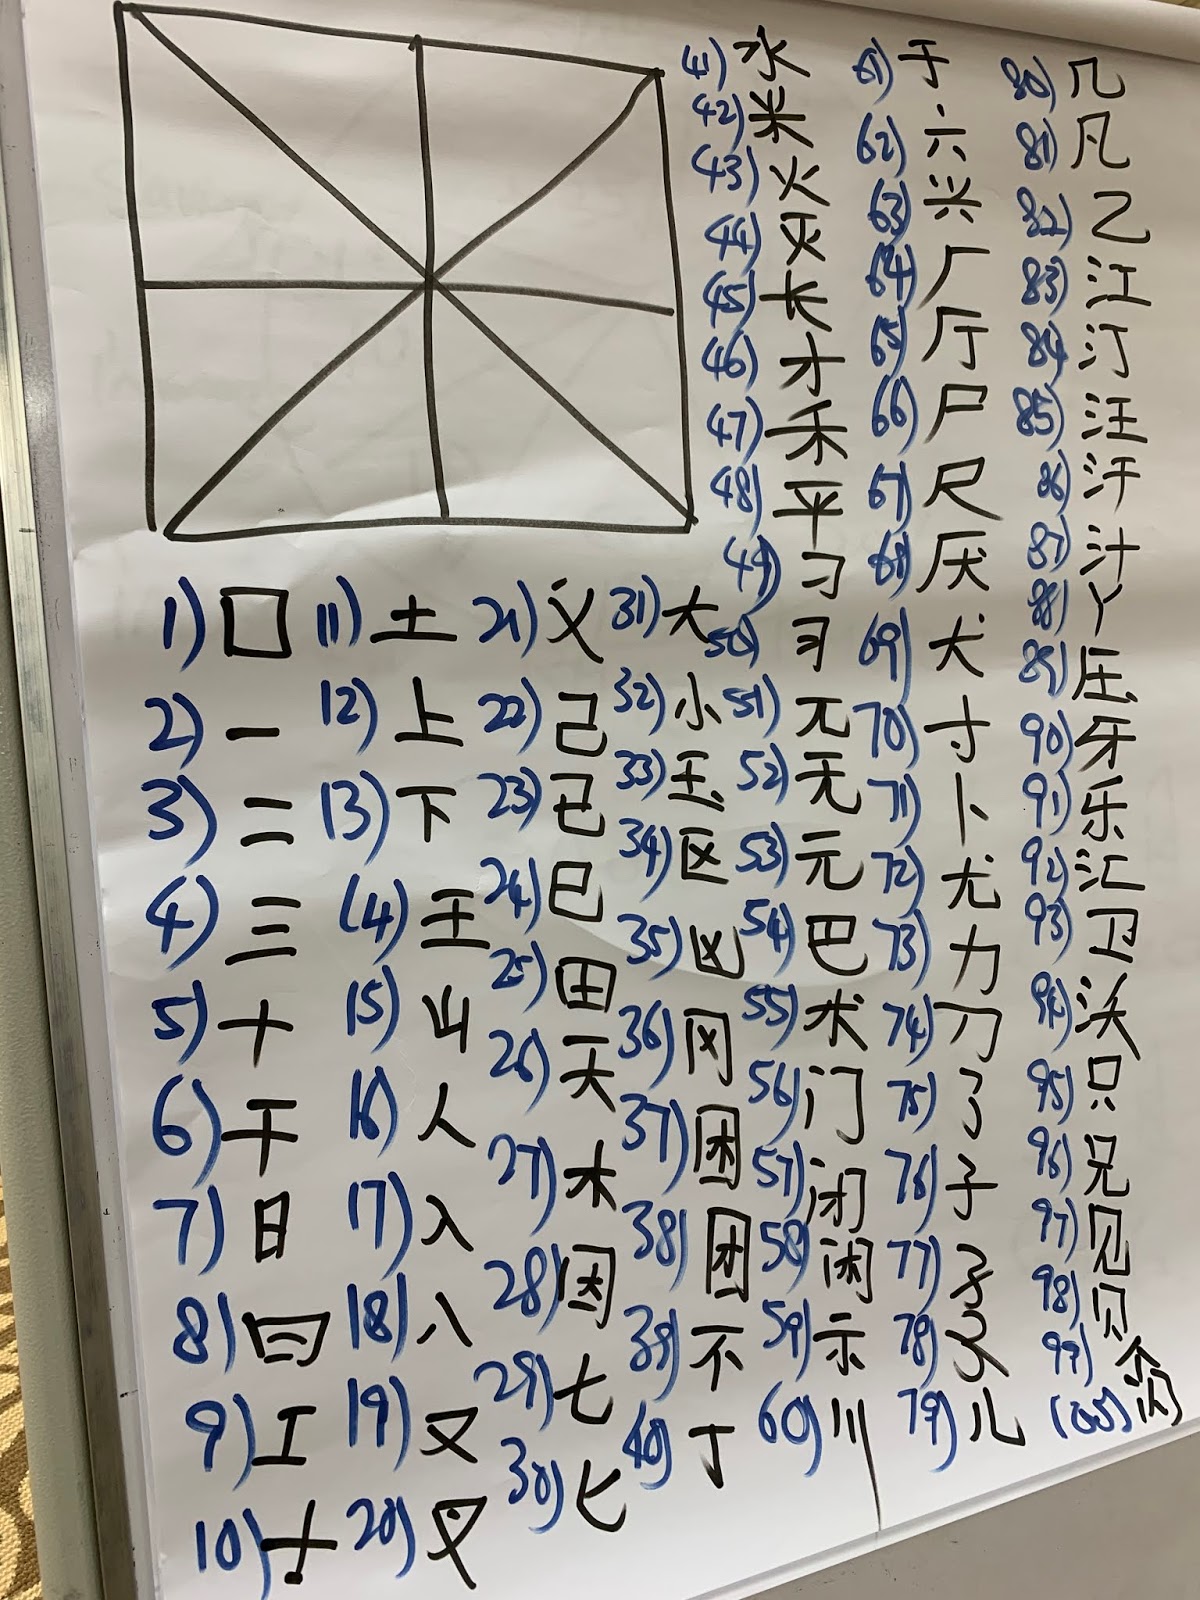 1) 口
2) 一
3) 二
4) 三
5) 十
6) 干
7) 日
8)
9) 工
10)
11) 土
12) 上
13) 下
14) 王
15) 山
16) 人
17) 入
18) 八
19) 又
20) 叉
21) 义
22) 己
23) 已
24) 巳
25) 田
26) 天
27) 木
28) 因
29) 七
30) 匕
31) 大
32) 小
33) 玉
34) 区
35) 凶
36) 冈
37) 困
38) 团
39) 不
40) 丁
41) 水
42) 米
43) 火
44) 灭
45) 长
46) 才
47) 禾
48) 平
49) 刁
50) 习
51) 兀
52) 无
53) 元
54) 巴
55) 术
56) 门
57) 闭
58) 闲
59) 示
60) 川
61) 于
62) 六
63) 兴
64) 厂
65) 厅
66) 尸
67) 尺
68) 厌
69) 犬
70) 寸
71) 卜
72) 尤
73) 力
74) 刀
75) 了
76) 子
77) 孑
78) 孓
79) 儿
80) 几
81) 凡
82) 乙
83) 江
84) 汀
85) 汪
86) 汗
87) 汁
88) 丫
89) 压
90) 牙
91) 乐
92) 汇
93) 卫
94) 沃
95) 只
96) 兄
97) 见
98) 贝
99)
100)